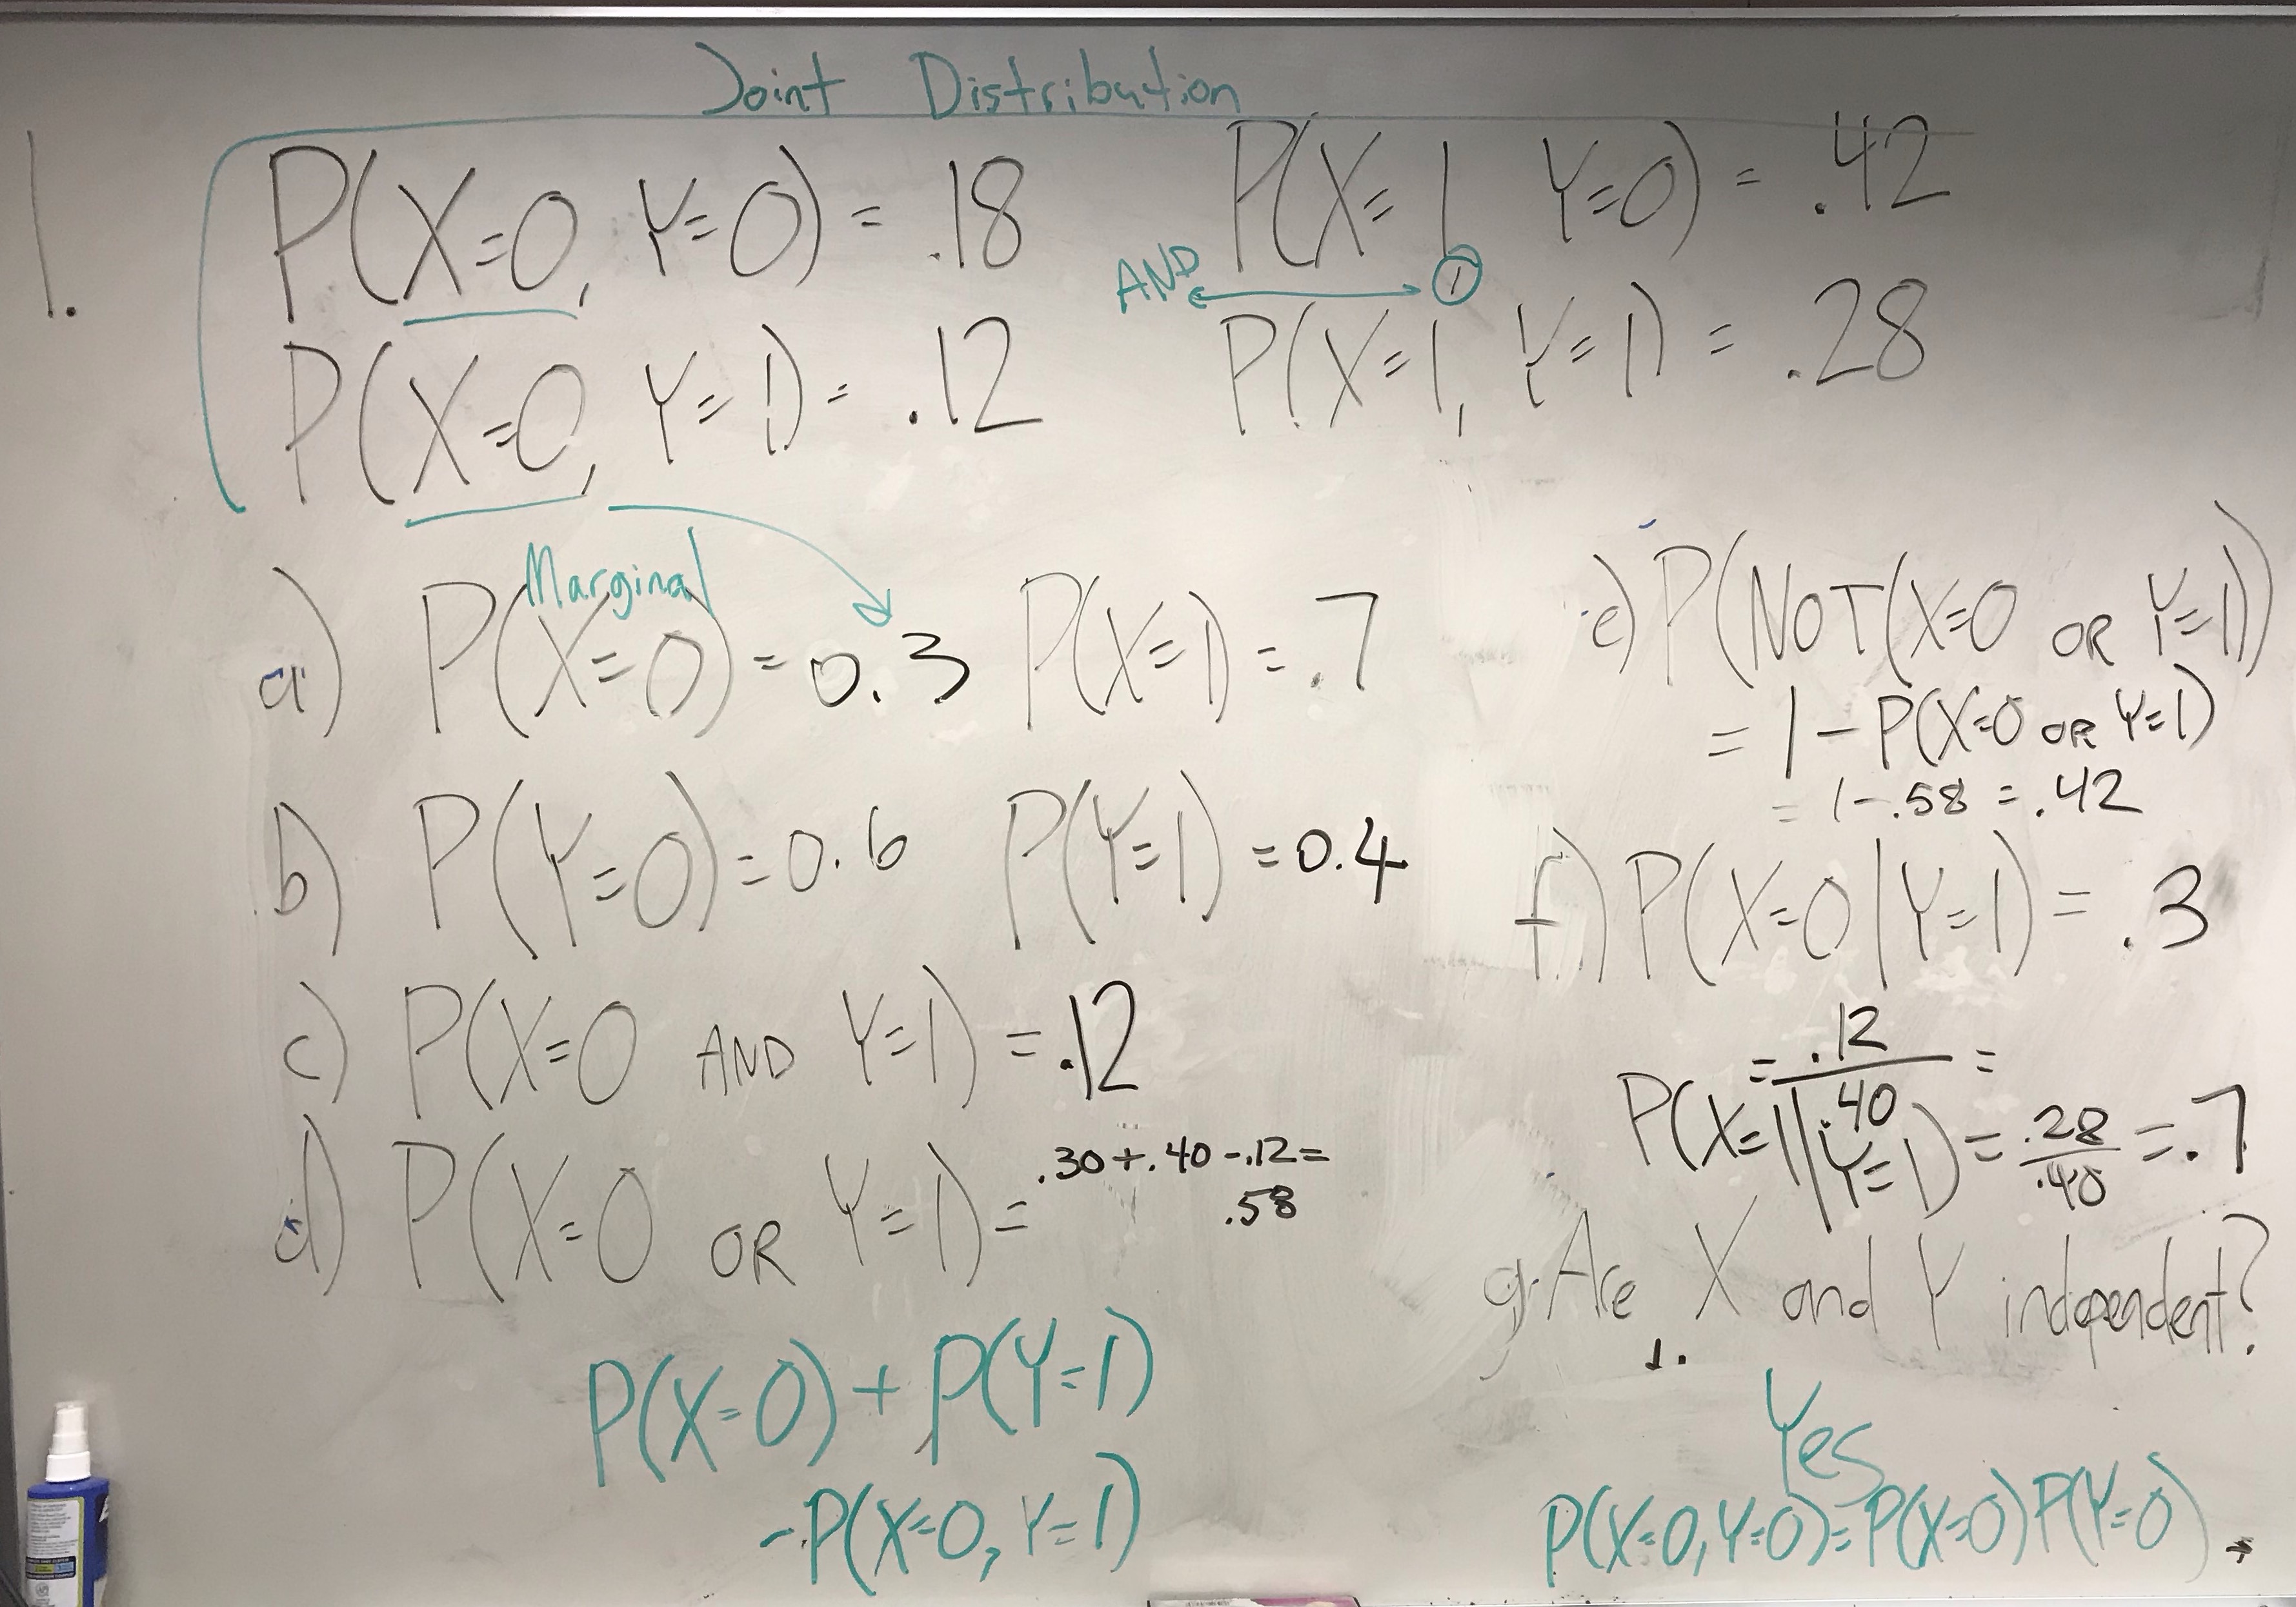 Joint Distribution
1.
P(X=0, Y=0) = .18
P(X=1 Y=0) = .42
AND
,
P(X=0, Y=1) = .12
P(X=1, Y=1) = .28
Marginal
a) P(X=0) = 0.3 P(X=1) = .7
b) P(Y=0) = 0.6 P(Y=1) = 0.4
c) P(X=0 AND Y=1) = .12
d) P(X=0 OR Y=1) = .30 + .40 - .12 =
.58
P(X=0) + P(Y=1)
- P(X=0, Y=1)
e) P(NOT(X=0 OR Y=1))
= 1 - P(X=0 OR Y=1)
= 1 - .58 = .42
f) P(X=0|Y=1) = .3
= .12 / .40 =
P(X=1|Y=1) = .28 / .40 = .7
g. Are X and Y independent?
1.
Yes
P(X=0, Y=0) = P(X=0) P(Y=0)